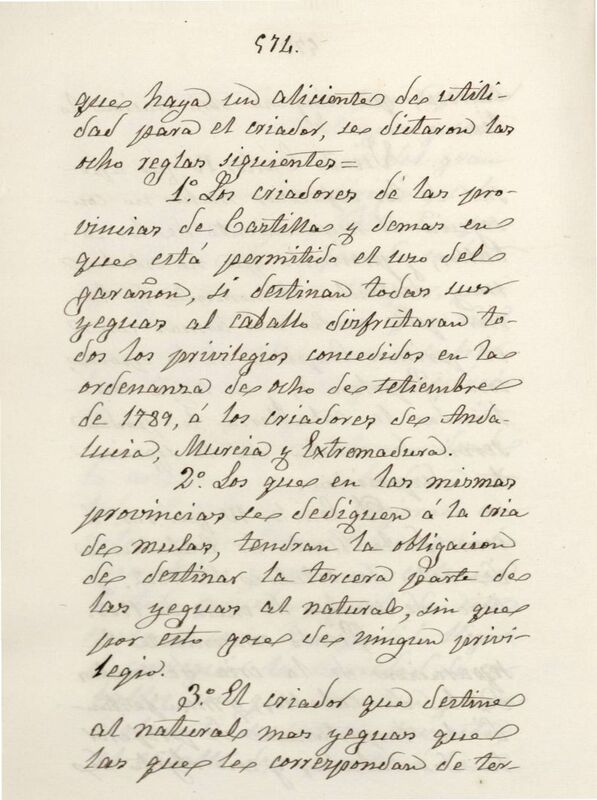 574.
que haya un aliciente de utili-
dad para el criador, se dictaron las
ocho reglas siguientes=
1.º Los criadores dé las pro-
vincias de Castilla y demas en
que está permitido el uso del
garañon, si destinan todas sus
yeguas al caballo disfrutaran to-
dos los privilegios concedidos en la
ordenanza de ocho de setiembre
de 1789, á los criadores de Anda-
lucia, Murcia y Extremadura.
2.º Los que en las mismas
provincias se dediquen á la cria
de mulas, tendran la obligacion
de destinar la tercera parte de
las yeguas al natural, sin que
por esto goce de ningun privi-
legio.
3.º El criador que destine
al natural mas yeguas que
las que le correspondan de ter-